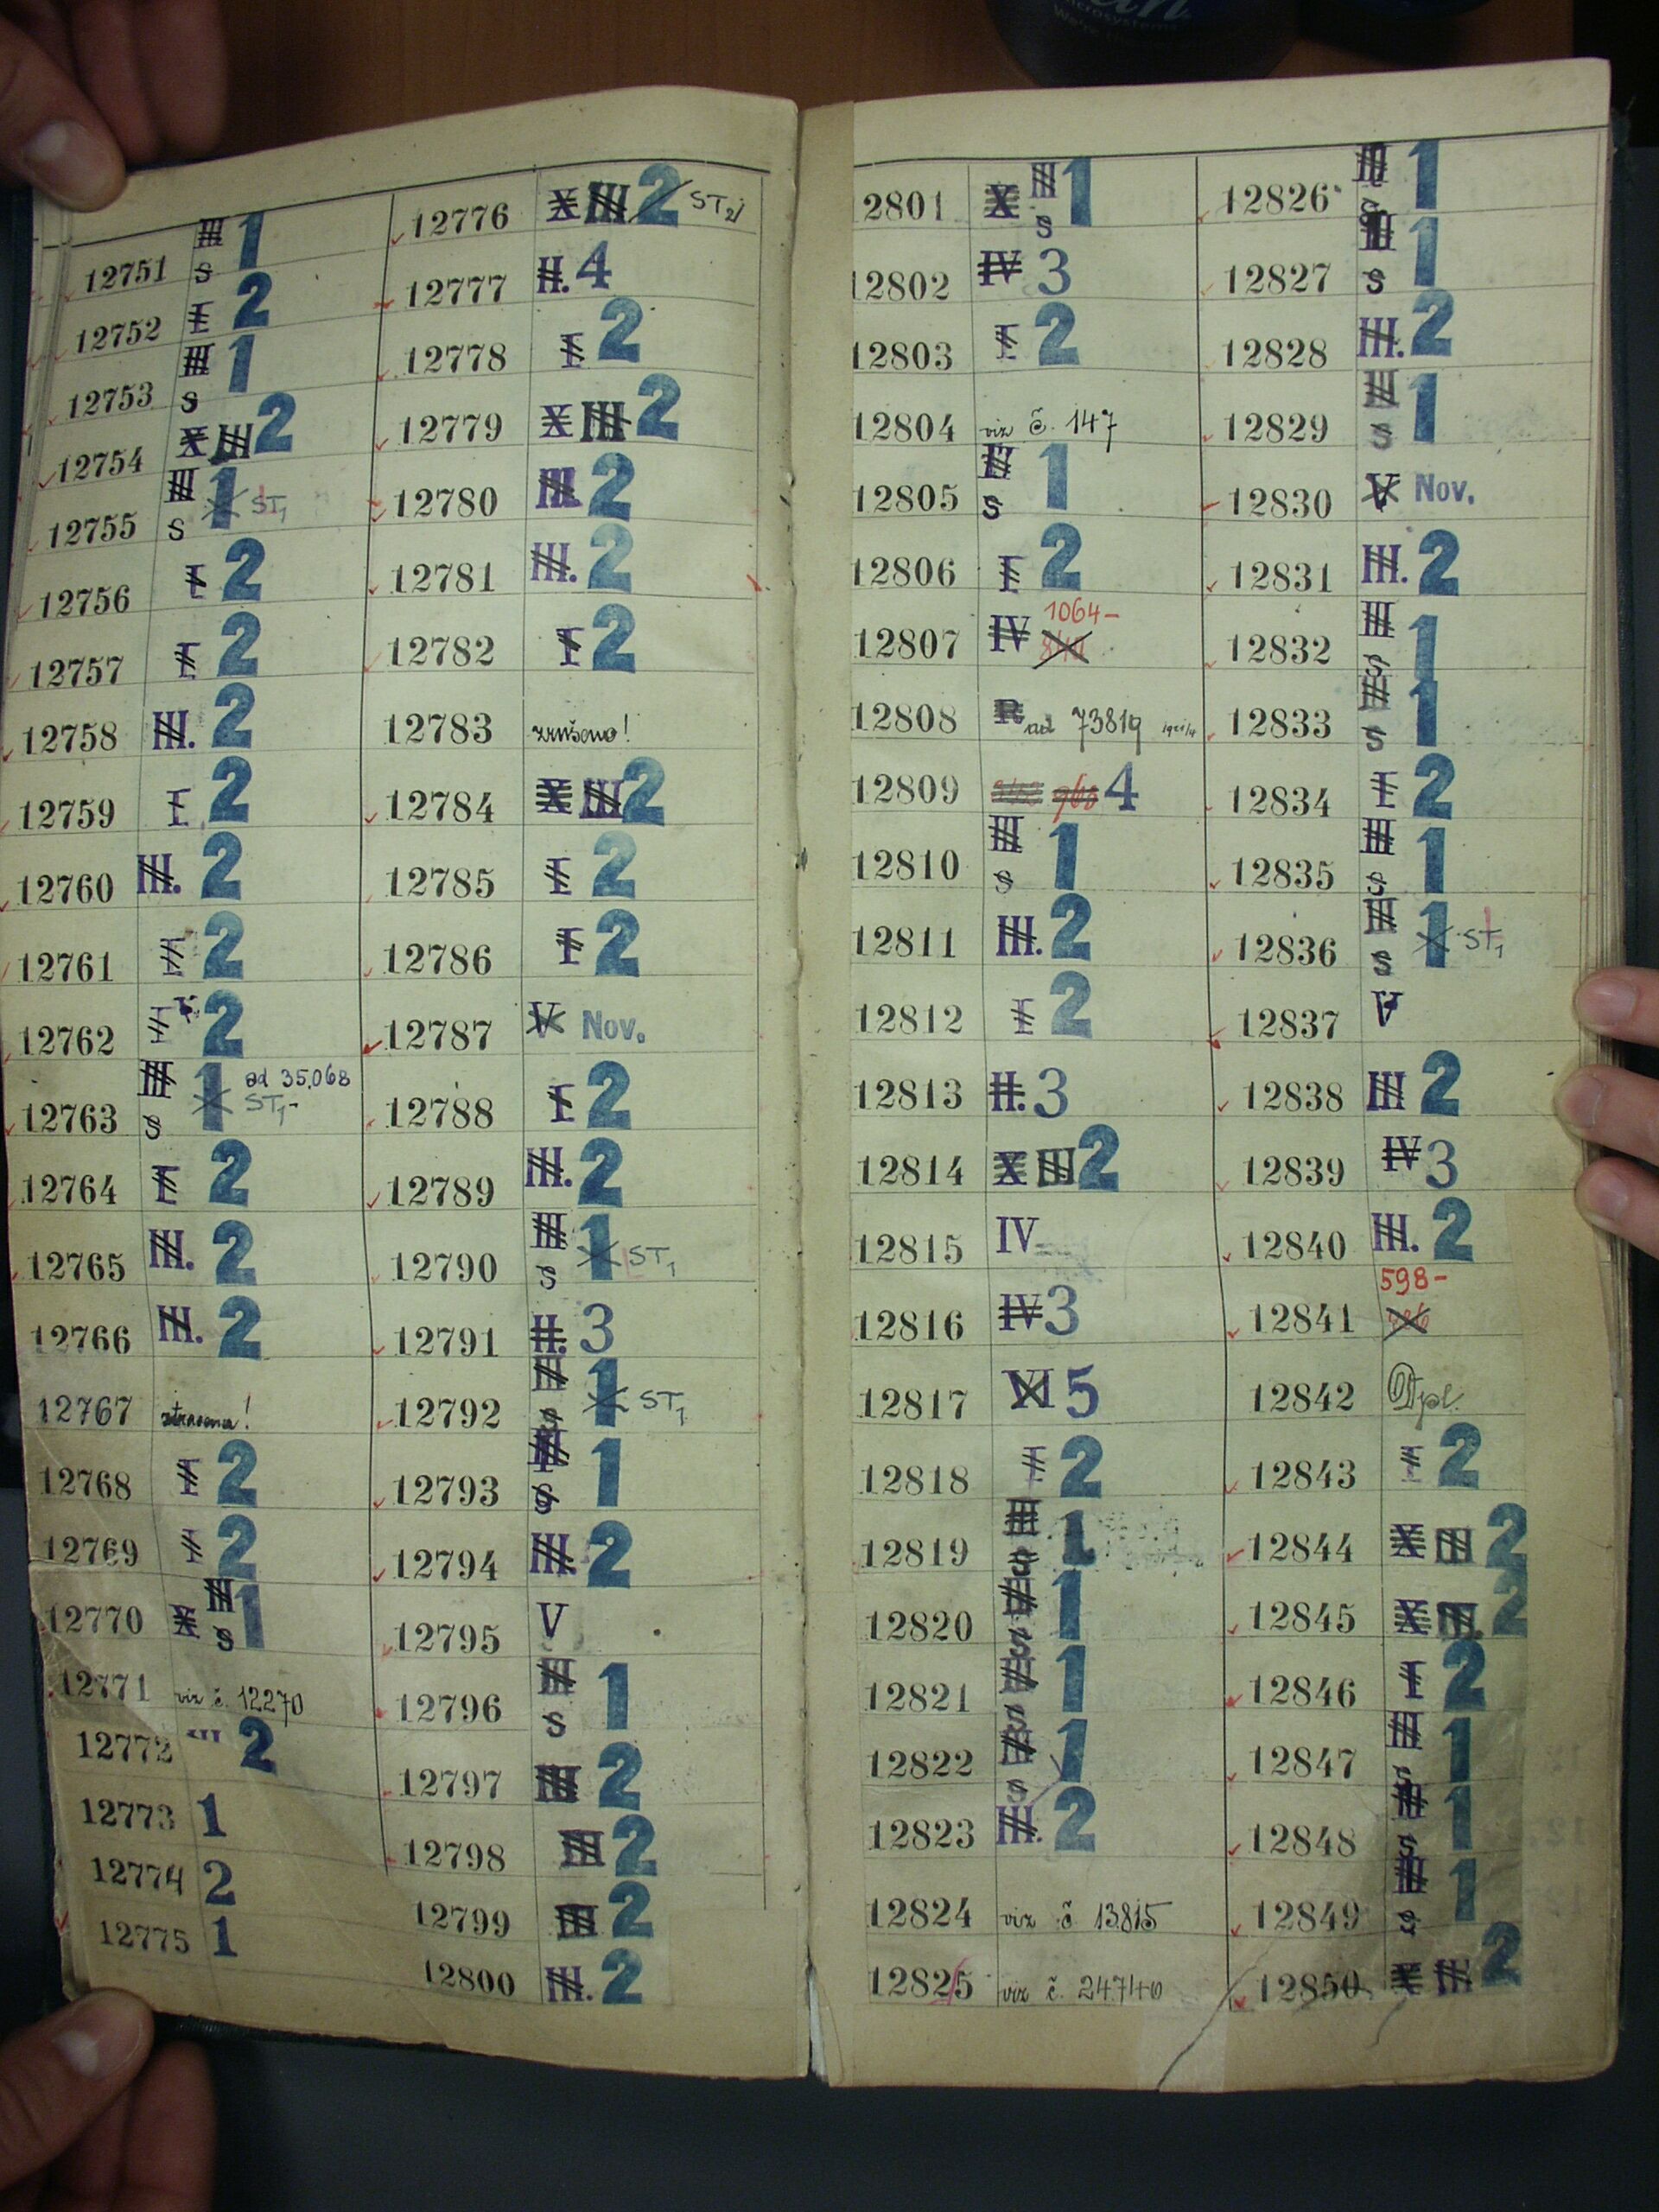 12751 III s 1
12752 I 2
12753 III s 1
12754 X III 2
12755 III s 1 ST1
12756 I 2
12757 I 2
12758 III. 2
12759 I 2
12760 III. 2
12761 I 2
12762 I 2
12763 III s 1 ad 35.068 ST1-
12764 I 2
12765 III. 2
12766 III. 2
12767 ztracena!
12768 I 2
12769 I 2
12770 X III s 1
12771 viz č. 12270
12772 III 2
12773 1
12774 2
12775 1
12776 X III 2 ST2
12777 II. 4
12778 I 2
12779 X III 2
12780 III. 2
12781 III. 2
12782 I 2
12783 zrušeno!
12784 X III 2
12785 I 2
12786 I 2
12787 V Nov.
12788 I 2
12789 III. 2
12790 III s 1 ST1
12791 II. 3
12792 III s 1 ST1
12793 III s 1
12794 III. 2
12795 V
12796 III s 1
12797 III 2
12798 III 2
12799 III 2
12800 III. 2
12801 X III s 1
12802 IV 3
12803 I 2
12804 viz č. 147
12805 III s 1
12806 I 2
12807 IV 1064-
12808 R ad 73819
12809 4
12810 III s 1
12811 III. 2
12812 I 2
12813 II. 3
12814 X III 2
12815 IV
12816 IV 3
12817 XI 5
12818 I 2
12819 III s 1
12820 III s 1
12821 III s 1
12822 III s 1
12823 III. 2
12824 viz č 13815
12825 viz č. 24740
12826 III s 1
12827 III s 1
12828 III. 2
12829 III s 1
12830 V Nov.
12831 III. 2
12832 III s 1
12833 III s 1
12834 I 2
12835 III s 1
12836 III s 1 ST1
12837 V
12838 III 2
12839 IV 3
12840 III. 2
12841 598-
12842 Dpl.
12843 I 2
12844 X III 2
12845 X III. 2
12846 I 2
12847 III s 1
12848 III s 1
12849 III s 1
12850 X III. 2